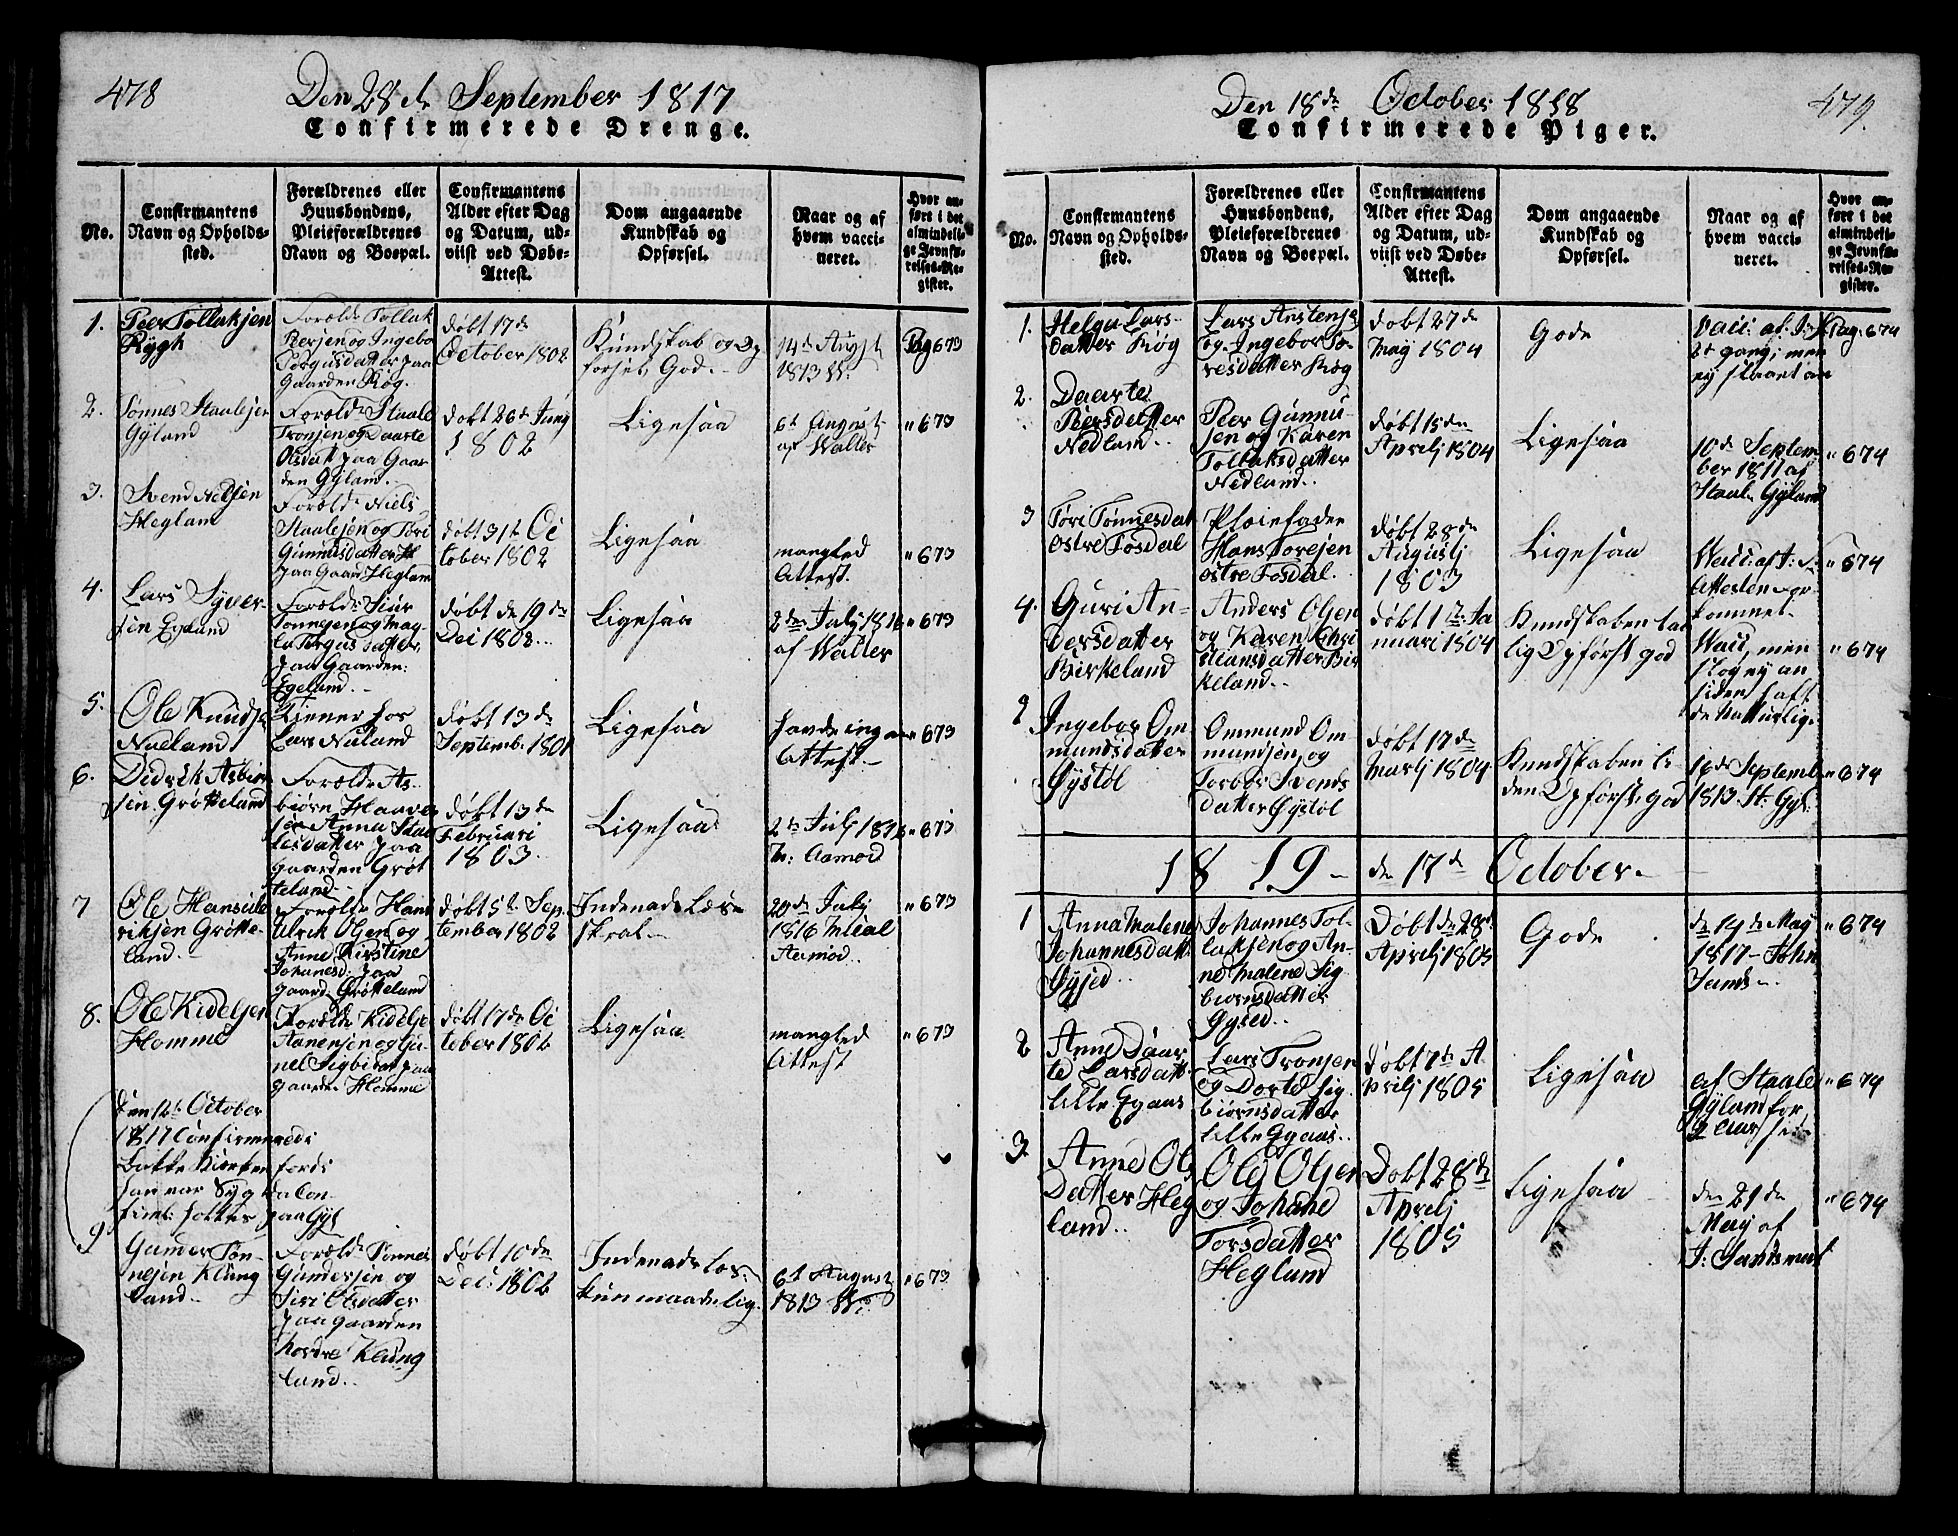 478
Den 28de September 1817
Confirmerede Drenge.
No.
Confirmantens
Navn og Opholds-
sted.
Forældrenes eller
Huusbondens,
Pleieforældrenes
Navn og Boepæl.
Confirmantens
Alder efter Dag
og Datum, ud-
viist ved Døbe-
Attest.
Dom angaaende
Kundskab og
Opførsel.
Naar og af
hvem vacci-
neret.
Hvor an-
ført i det
almindeli-
ge Jevnfø-
relses-Re-
gister.
1.
Peer Tollaksen
Rygh
Foreld: Tollak
Peersen og Ingebor
Torgusdatter paa
Gaarden Røg.
døbt 17de
October 1802
Kundskab og Op
førsel God.
14de Augst
1813
Pag 673
2.
Tønnes Staalesen
Gyland
Foreld: Staale
Tronsen og Daarte
Olsdat. paa Gaar
den Gyland.
døbt 26de Juny
1802
Ligesaa
6t August
af Waller
" 673
3.
Svend Nelsen
Heglan
Foreld: Niels
Staalesen og Tori
Gunnusdatter
paa Gaard Heglam
døbt 31te Oc
tober 1802
Ligesaa
mangled
Attest.
" 673
4.
Lars Syver-
sen Egeland
Foreld: Siur
Tønnesen og Mag-
la Torgusdatter,
paa Gaarden:
Egeland.
døbt de 19de
Dec 1802
Ligesaa
2den July 1816
af Waller
" 673
5.
Ole Knuds.
Nueland
Tiener hos
Lars Nuland
døbt 13de
Septemb: 1801
Ligesaa
havde ingen
Attest.
" 673
6.
Didrik Asbiør
sen Grøtteland
Foreld: As-
biørn Haaver
sen Anna Staa
lesdatter paa
gaarden Grøt
teland
døbt 13de
Februari
1803
Ligesaa
2de July 1816
Th: Aamod
" 673
7
Ole Hansule
riksen Grøtte-
land.
Foreld: Hans
Ulrik Olsen og
Anne Kirstine
Johanesd. paa
gaard: Grøtteland
døbt 5te Sep
tember 1802
Indenads Læs-
skral
20de July
1816
Aamod
" 673
8.
Ole Kidelsen
Homme
Foreld: Kidelse
Aanensen og Gu-
nel Sigbi dat paa
gaarden Homme
døbt 17de Oc
tober 1802
Ligesaa
mangled
Attest
" 673
Den 12te October
1817 Confirmerede
Bakke Kirke
han var Syg da Con-
firm: holtes paa Gyl
9
Gunder Tøn-
nesen Klung
land
Foreld: Tønnes
Gundersen og
Siri Olsdatter
paa gaarden
Nordre Klung
land
døbt 10de
Dec: 1802
Indenads Læs:
kun maadelig.
6t August
1813
" 673
Den 18de October 1818
479.
Confirmerede Piger.
No.
Confirmantens
Navn og Opholds-
sted.
Forældrenes eller
Huusbondens,
Pleieforældrenes
Navn og Boepæl.
Confirmantens
Alder efter Dag
og Datum, ud-
viist ved Døbe-
Attest.
Dom angaaende
Kundskab og
Opførsel.
Naar og af
hvem vacci-
neret.
Hvor an-
ført i det
almindeli-
ge Jevnfø-
relses-Re-
gister.
1.
Helga Lars-
datter Røg
Lars Anstensen
og Ingebor To-
resdatter Røg
døbt 27de
May 1804
Gode
Vacc: af
2t gang, men
ey slaaet an
Pag: 674
2.
Daarte
Peersdatter
Nedland
Peer Gunnu-
sen og Karen
Tollaksdatter
Nedland
døbt 15den
Aprilj 1804
Ligesaa
10de Septem
ber 1811 af
Staale Gyland
" 674
3
Tori Tønnesdat
østre Tosdal
Pleiefader
Hans Toresen
østre Tosdal
døbt 28de
Augustj
1803
Ligesaa
Attesten
kommet
" 674
4.
Guri An-
dersdatter
Birkeland
Anders Olsen
og Karen Chri
stiansdatter Bir
keland
døbt 1te Ja
nuari 1804
Kundskaben taa
lig Opførsl, god
Vacc, men
slog ey an
siden haft
de Natturlige
" 674
Ingebor Om-
mundsdatter
Øystøl
Ommund Om
mundsen, og
Torbor Svends
datter Øystøl
døbt 17de
Martj 1804
Kundskaben li-
den Opførsl, god
16de Septemb
1813. St: Gyl:
" 674
1819 de 17de October
1
Anna Malene
Johannesdatt
Gysed
Johannes Tol-
laksen og An-
ne Malene Sig
biørnsdatter
Gysed
Døbt de 28de
Aprilj 1805
Gode
de 14de May
1817 John
" 674
2
Anne Daar
te Larsdatt
Lille Egaas
Lars Tronsen
og Dorte Sig
biørnsdatter
Lille Egaas
Døbt 7de A
prilj 1805
Ligesaa
af Staale
Gyland for
2 Aar siden
" 674
3.
Anne Ols
Datter Heg
land
Ole Olsen
og Johane
Torsdatter
Heglund
Døbt 28de
Aprilj
1805
Ligesaa
den 21de
May af
" 674